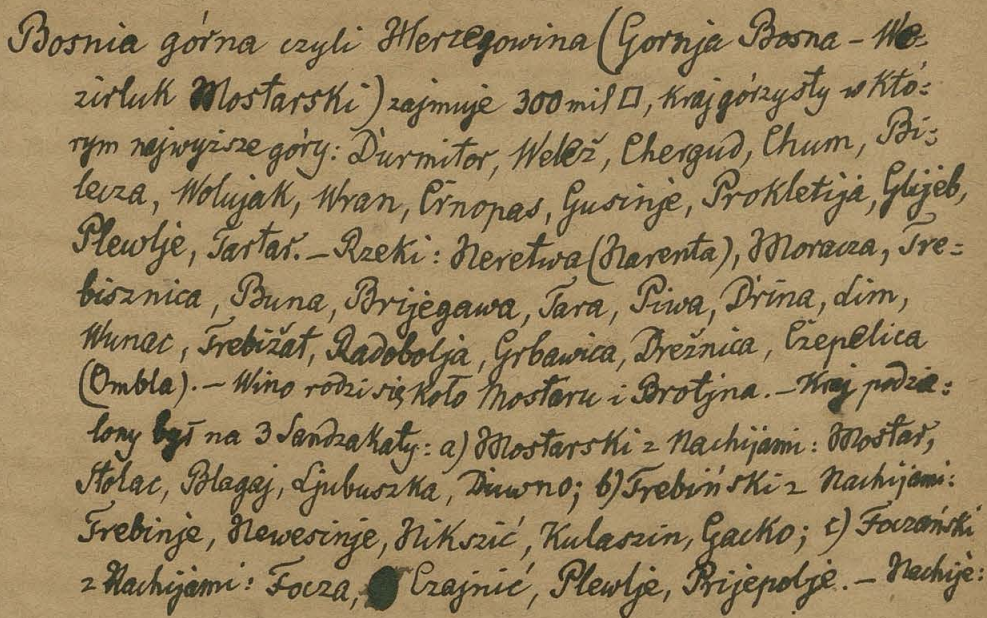 Bosnia górna czyli Hercegowina (Gornja Bosna – We=
zirluk Mostarski) zajmuje 300 mil □, kraj górzysty w któ=
rym najwyższe góry: Durmitor, Welež, Chergud, Chum, Bi=
lecza, Wolujak, Wran, Črnopas, Gusinje, Prokletija, Glijeb,
Plewlje, Tartar. – Rzeki: Neretwa (Narenta), Moracza, Tre=
bisznica, Buna, Brijegawa, Tara, Piwa, Drina, Lim,
Wunac, Trebižat, Radobolja, Grbawica, Drežnica, Czepelica
(Ombla). – Wino rodzi się koło Mostaru i Brotjna. – Kraj podzie=
lony był na 3 Sandzakaty: a) Mostarski z Nachijami: Mostar,
Stolac, Blagaj, Ljubuszka, Duwno; b) Trebiński z Nachijami:
Trebinje, Newesinje, Nikszić, Kulaszin, Gacko; c) Foczański
z Nachijami: Focza, Czajnić, Plewlje, Prijepolje. – Nachije: